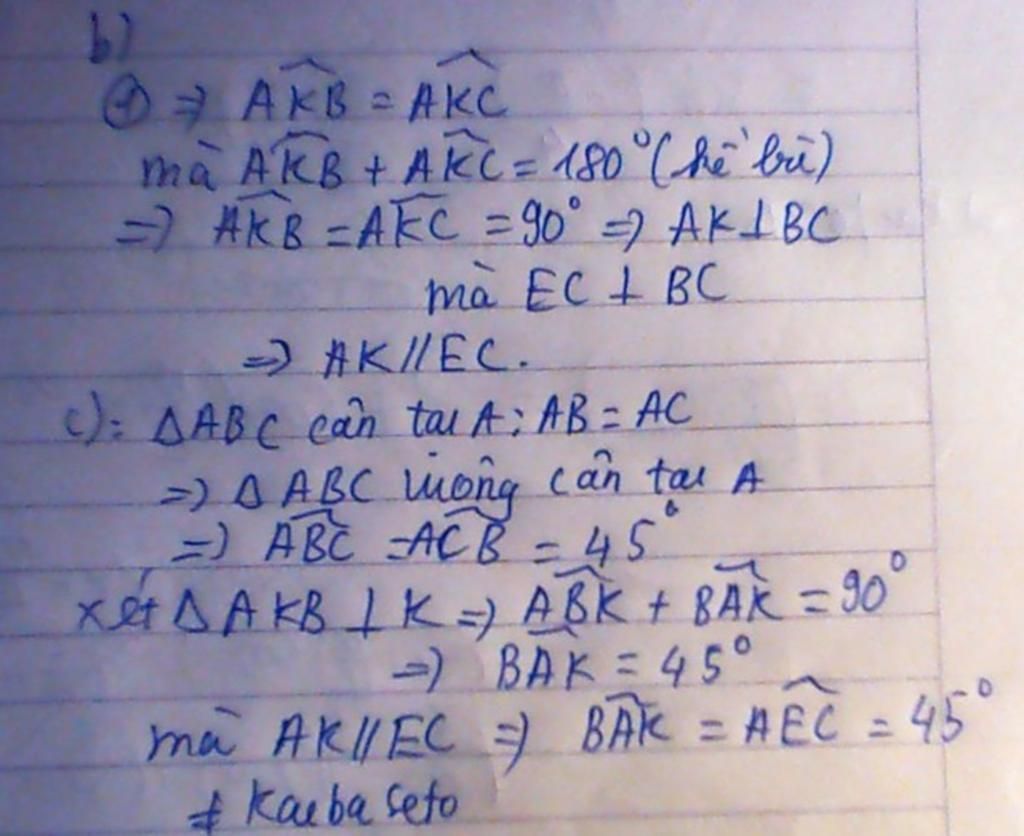 b)
① => AKB = AKC
mà AKB + AKC = 180° (kề bù)
=> AKB = AKC = 90° => AK ⊥ BC
mà EC ⊥ BC
=> AK // EC.
c): Δ ABC cân tại A: AB = AC
=> Δ ABC vuông cân tại A
=> ABC = ACB = 45°
xét Δ AKB ⊥ K => ABK + BAK = 90°
=> BAK = 45°
mà AK // EC => BAK = AEC = 45°
# Kaiba Seto